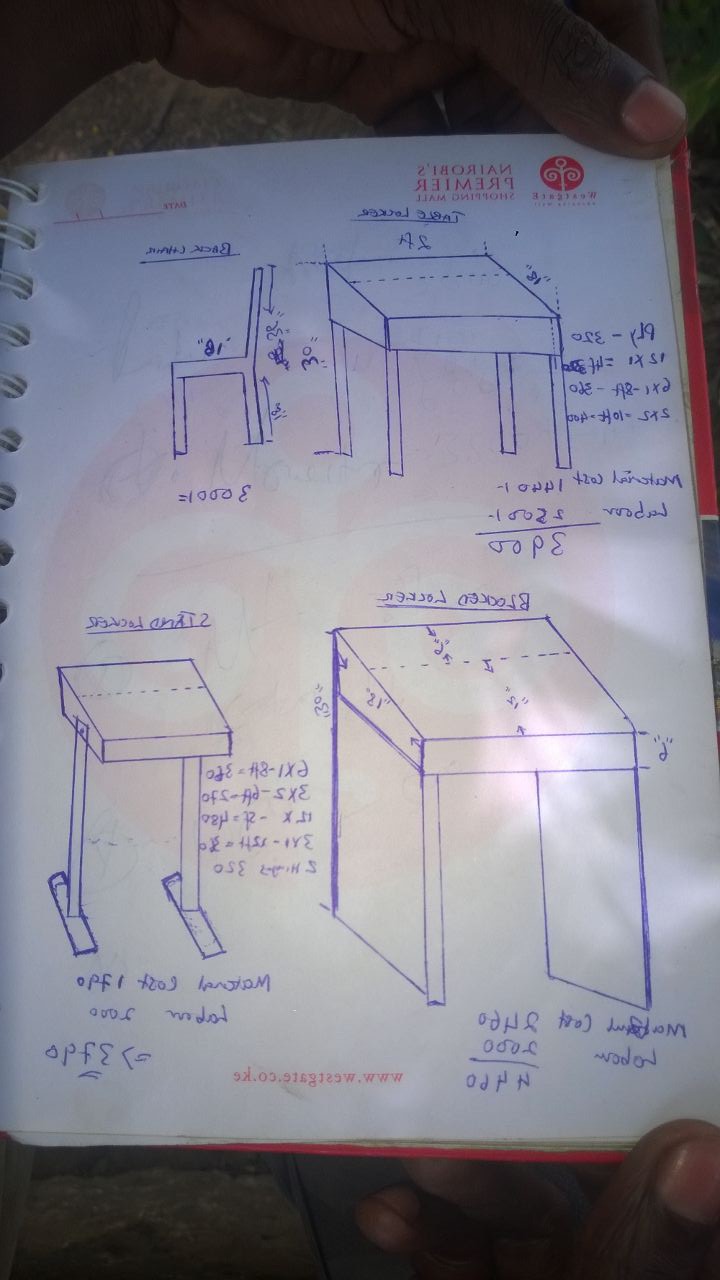 WestgatE
SHOPPING MALL
NAIROBI'S
PREMIER
SHOPPING MALL
DATE
TABLE LOCKER
2ft
18"
30"
Ply - 320
12x1 = 4ft
6x1-8ft-360
2x2=10ft=400
Material Cost 1440/-
Labour 2500/-
3900
BACK CHAIR
18"
3000/=
BLOCKED LOCKER
6"
12"
18"
30"
6"
Cost 2460
Labour 2000
4460
STAND LOCKER
6x1-8ft=360
3x2-6ft=270
12x -5f=480
3x1-12ft=
320
Material Cost 1790
Labour 2000
=> 3790
www.westgate.co.ke